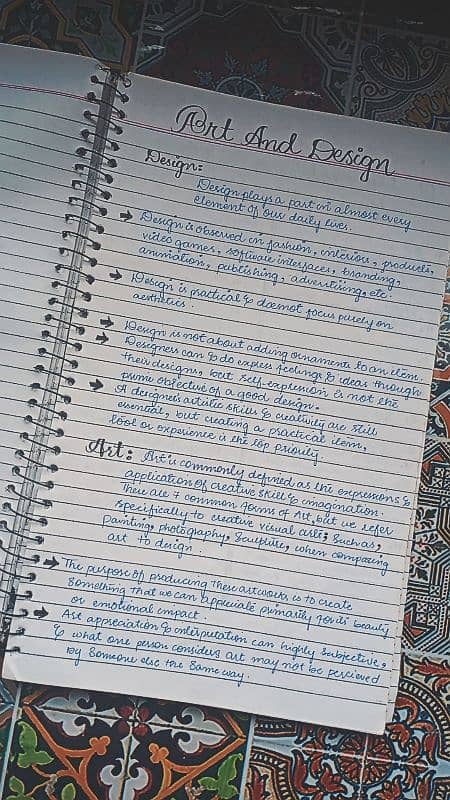 Art And Design
Design:
Design plays a part in almost every
element of our daily lives.
➡ Design is observed in fashion, interiors, products,
video games, software interfaces, branding,
animation, publishing, advertising, etc.
➡ Design is practical & doesnot focus purely on
aesthetics.
➡ Design is not about adding ornaments to an item.
➡ Designers can & do express feelings & ideas through
their designs, but self-expression is not the
prime objective of a good design.
➡ A designer's artistic skills & creativity are still
essential, but creating a practical item,
tool or experience is the top priority.
Art: Art is commonly defined as the expressions &
application of creative skill & imagination.
There are 7 common forms of Art, but we refer
specifically to creative visual arts, such as,
painting, photography, sculpture, when comparing
art to design.
➡ The purpose of producing these artworks is to create
something that we can appreciate primarily for its beauty
or emotional impact.
➡ Art appreciation & interpretation can highly subjective,
& what one person considers art may not be percieved
by someone else the same way.